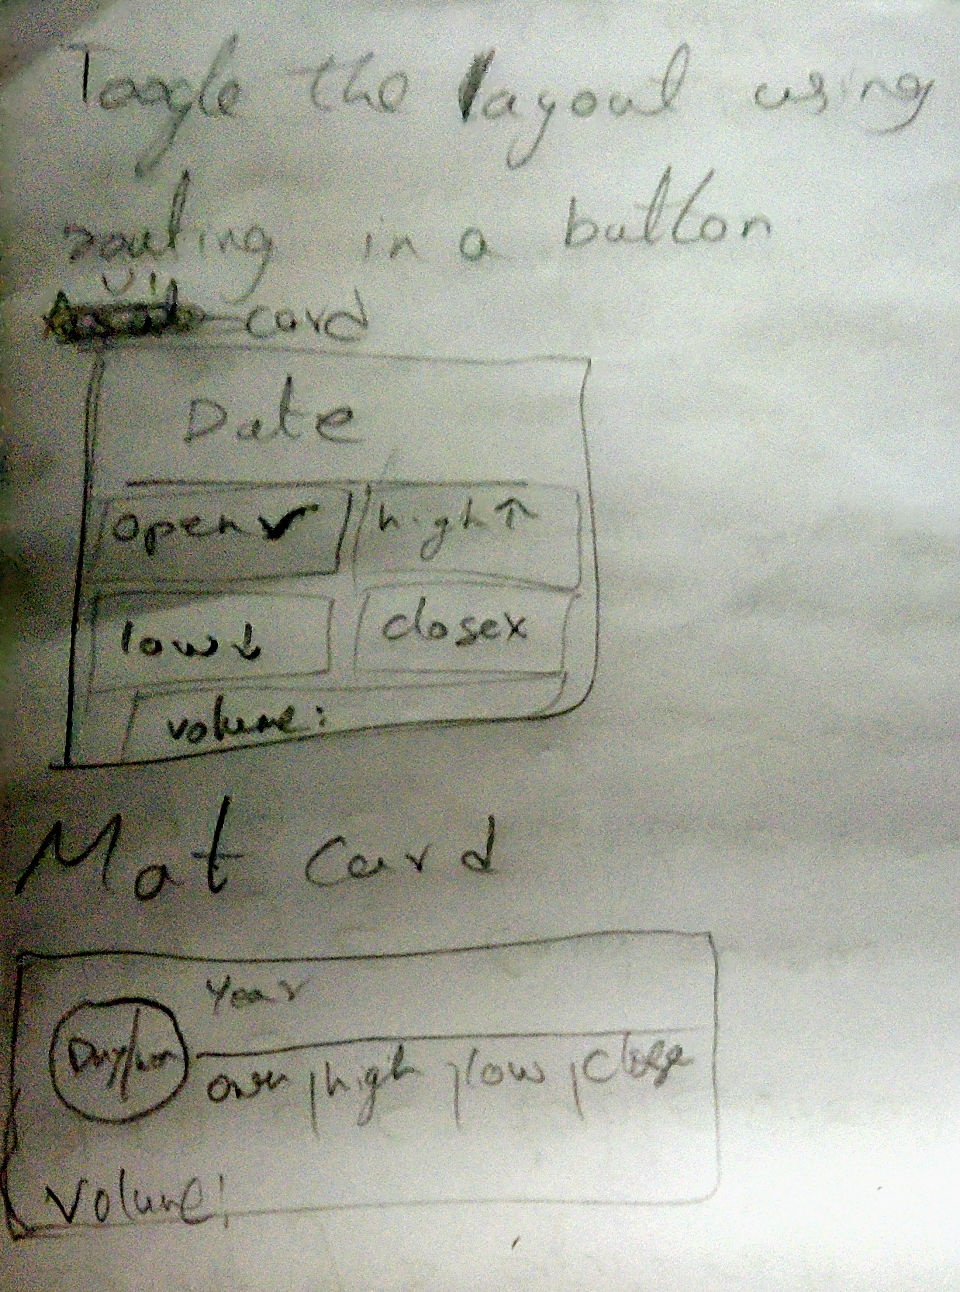 Toogle the layout using
routing in a button
UI
card
Date
open✓ high↑
low↓ close×
volume:
Mat Card
Year
Day/
open | high | low | close
Volume: